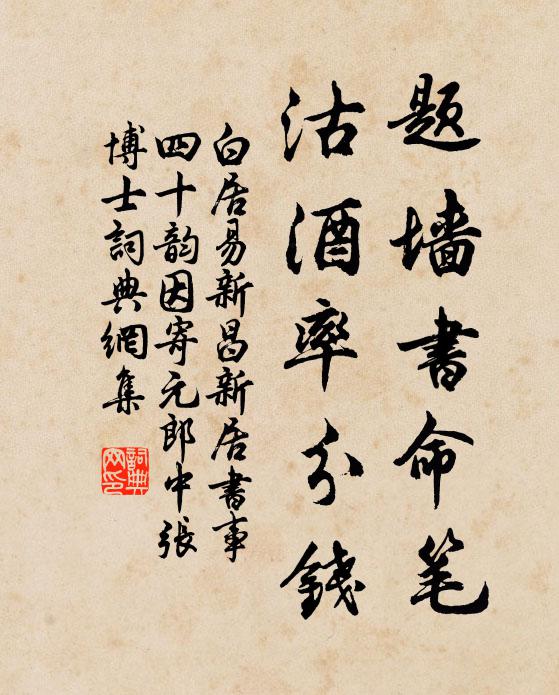 题墙書命笔
沽酒率分錢
白居易新昌新居書事
四十韵因寄元郎中張
博士詞典網集
詞典
网印